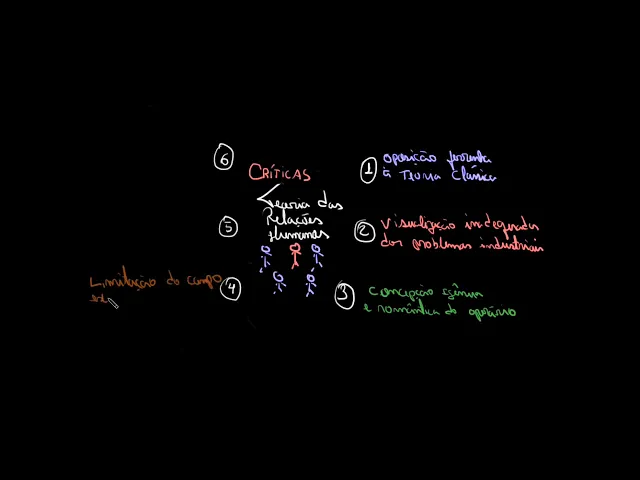 6
CRÍTICAS
Teoria das
Relações
Humanas
1
oposição ferrenha
à Teoria Clássica
5
2
Visualização inadequada
dos problemas industriais
Limitação do campo
4
3
concepção ingênua
e romântica do operário